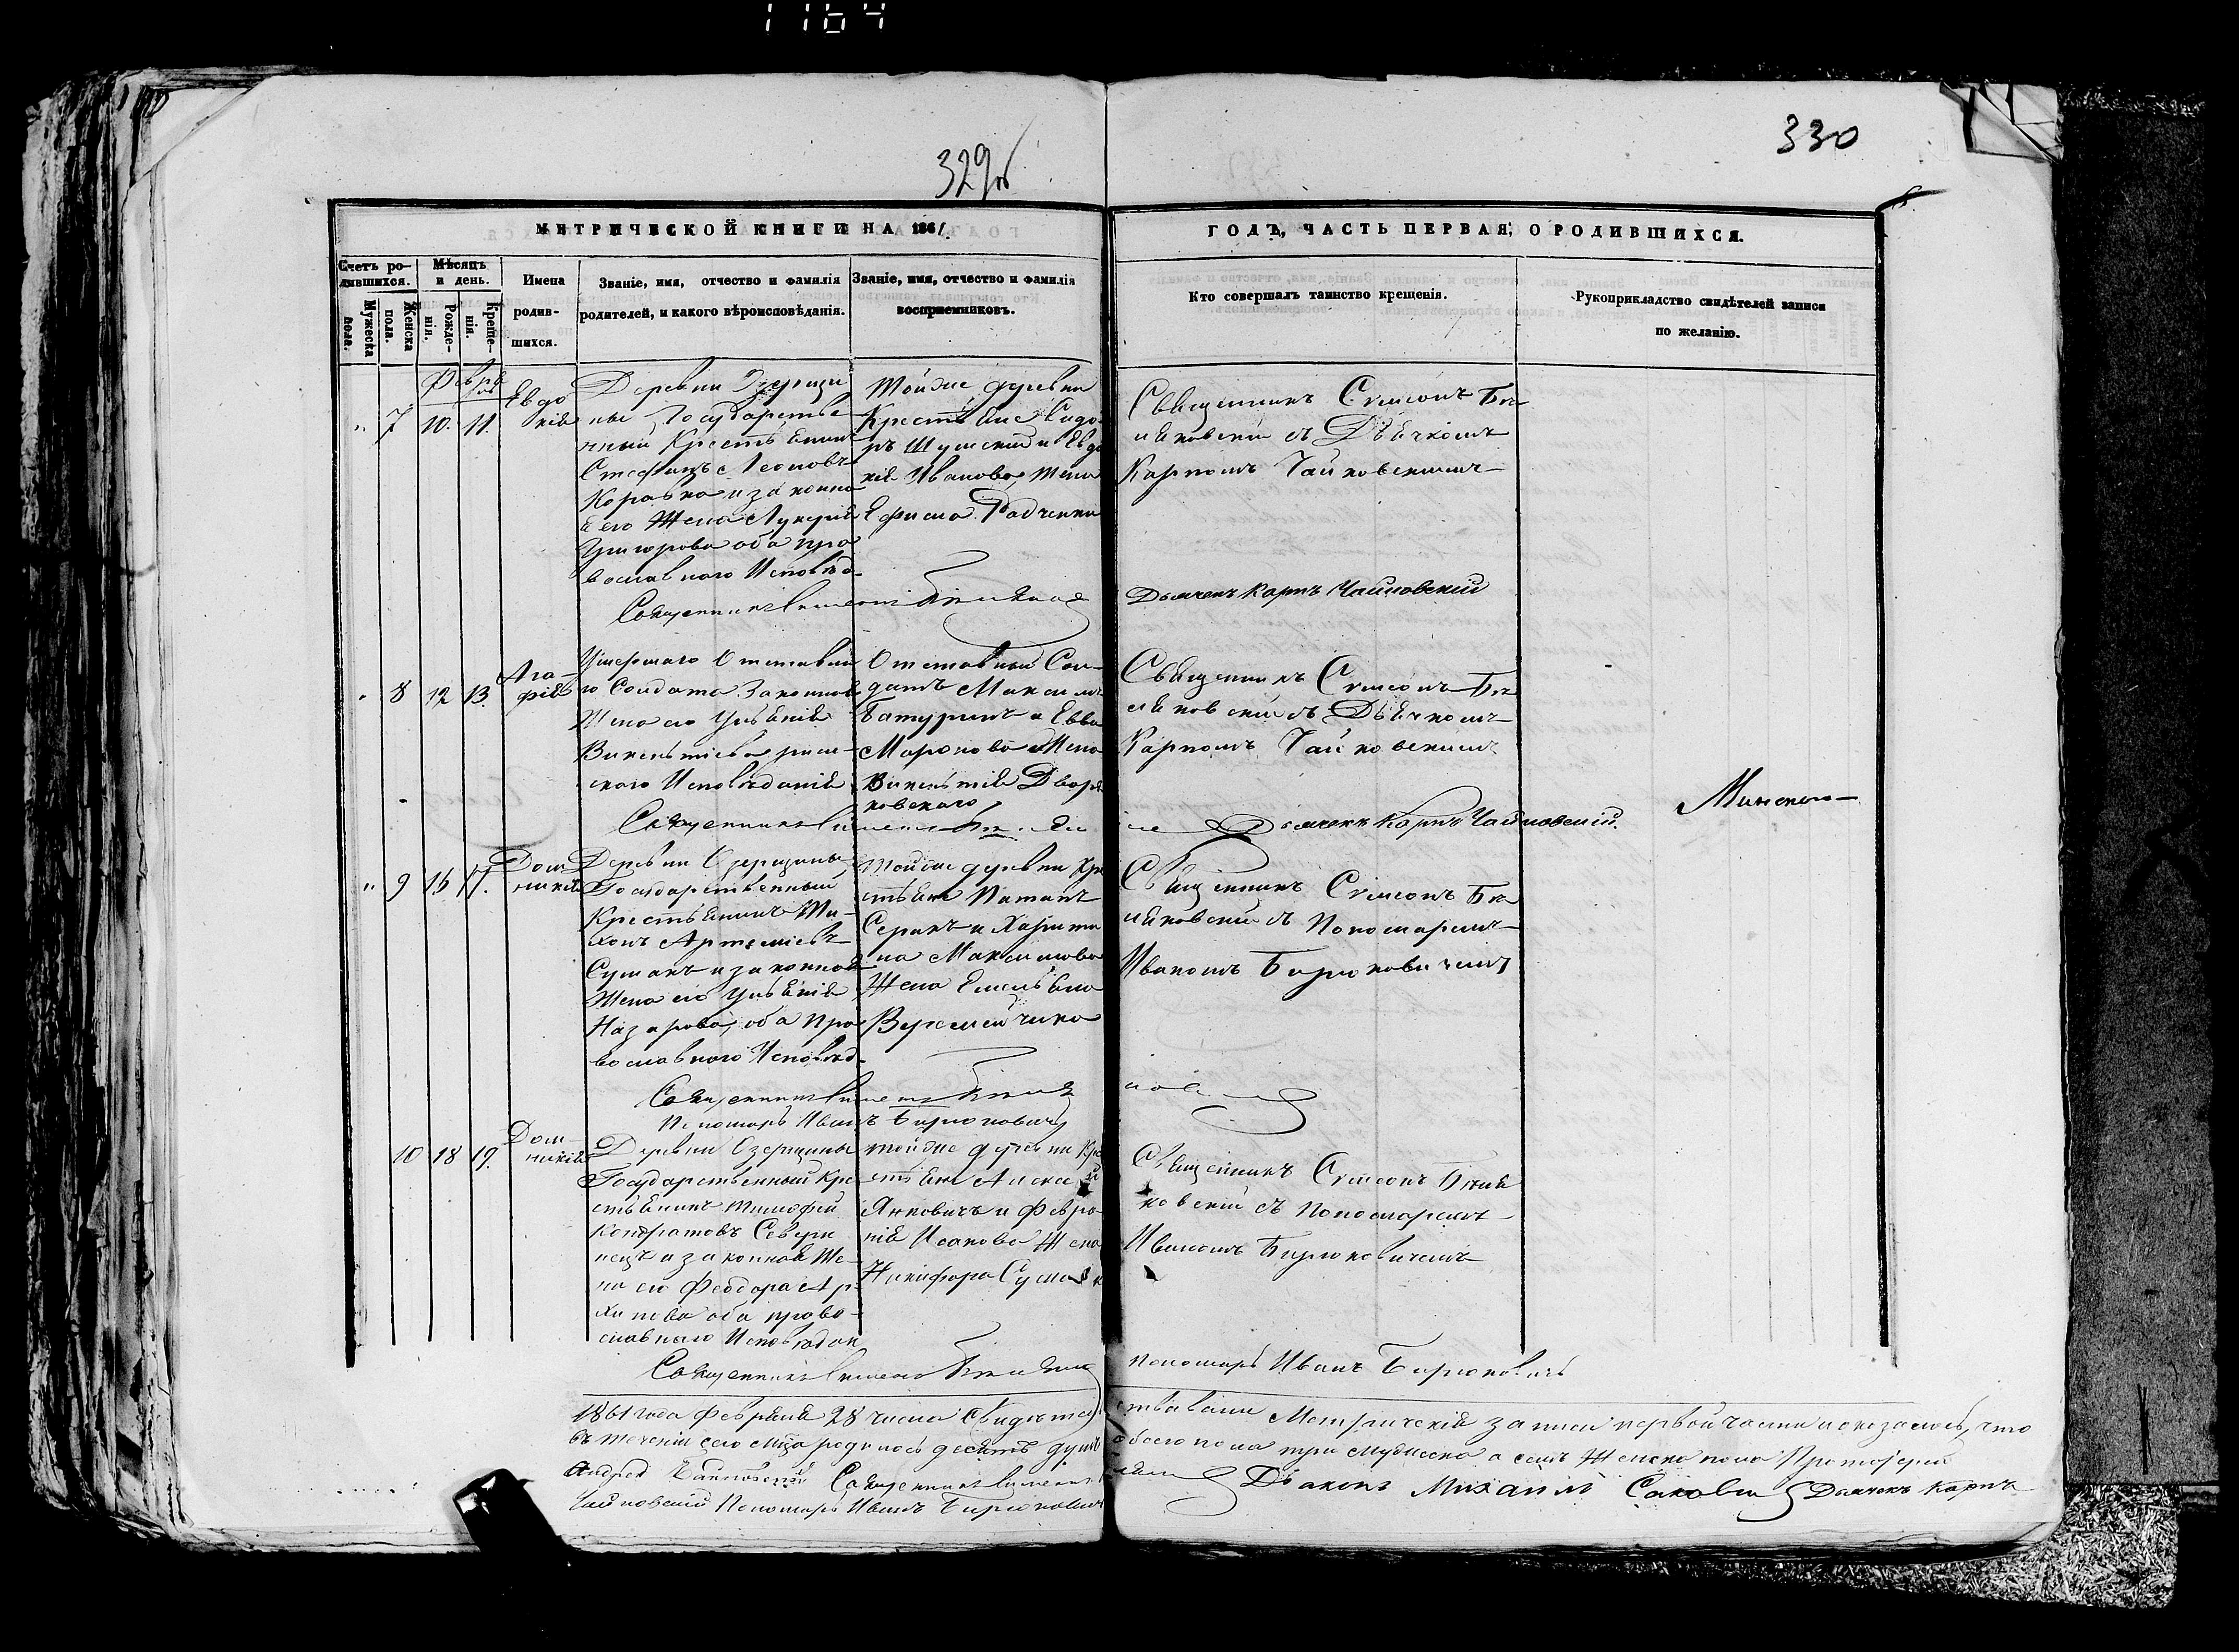 1164
329об
330
МЕТРИЧЕСКОЙ КНИГИ НА 1861
ГОДЪ, ЧАСТЬ ПЕРВАЯ, О РОДИВШИХСЯ.
Счетъ ро-
дившихся.
Мужеска
пола.
Женска
пола.
Мѣсяцъ
и день.
Рожде-
нія.
Креще-
нія.
Имена
родив-
шихся.
Званіе, имя, отчество и фамилія
родителей, и какого вѣроисповѣданія.
Званіе, имя, отчество и фамилія
восприемниковъ.
Кто совершалъ таинство крещенія.
Рукоприкладство свидѣтелей записи
по желанію.
„ 7 10. 11.
Евдо
кія
Деревни Озерщи
ны Государстве
нный Крестьянин
Стефанъ Леоновъ
и законна
я его Жена Лукерія
Григорова оба пра
вославного Исповѣда-
Тойже деревни
Крестьяне Сидо
ръ Шумскій и Евдо
кія Иванова, Жена
Ефима Радченки
Священникъ Симеонъ Бѣ
ляковскій съ Дьячкомъ
Карпомъ Чайковскимъ
Дьячекъ Карпъ Чайковскій
„ 8 12 13.
Ага-
фія
Умершаго Отставно
го Солдата Законная
Жена его Ульянія
Викентіева рим-
ского Исповѣданія
Отставный Сол-
датъ Максимъ
Батуринъ и Евва
Маркова Жена
Викентія Дворя
ковскаго
Священникъ Симеонъ Бѣ
ляковскій съ Дьячкомъ
Карпомъ Чайковскимъ
Дьячекъ Карпъ Чайковскій.
Минского
„ 9 15 17.
Дом-
никія
Деревни Озерщины
Государственный
Крестьянинъ Ти-
хонъ Артемievъ
Сушакъ и законная
Жена его Ульянія
Назарова, оба Пра
вославного Исповѣд-
Тойже деревни Кре
стьяне Патапъ
Серакъ и Харити
на Максимова
Жена Емельяна
Веремейчика
Священникъ Симеонъ Бѣ
ляковскій съ Пономаремъ
Иваномъ Бирюковичемъ
Пономарь Иванъ Бирюковичъ
10 18 19.
Дом-
никія
Деревни Озерщины
Государственный Кре
стьянинъ Тимофей
Кондратовъ Севери
нецъ и законная Же-
на его Феодора Ар-
хипова оба право-
славнаго Исповѣдан
тойже деревни Кре
стьяне Алексѣй
Янковичъ и Февро
нія Исакова Жена
Никифора
Священникъ Симеонъ Бѣля
ковскій съ Пономаремъ
Иваномъ Бирюковичемъ
пономарь Иванъ Бирюковичъ
1861 года Февраля 28 числа Свидѣтел
ствовали Метрическія записи первой части и оказалось, что
въ теченіи сего мѣсяца родилось десять душъ
обоего пола три мужеска а семь Женска пола Протоіерей
Андрей Священникъ Симеонъ
Дьяконъ Михаилъ Дьячекъ Карпъ
Чайковскій Пономарь Иванъ Бирюковичъ